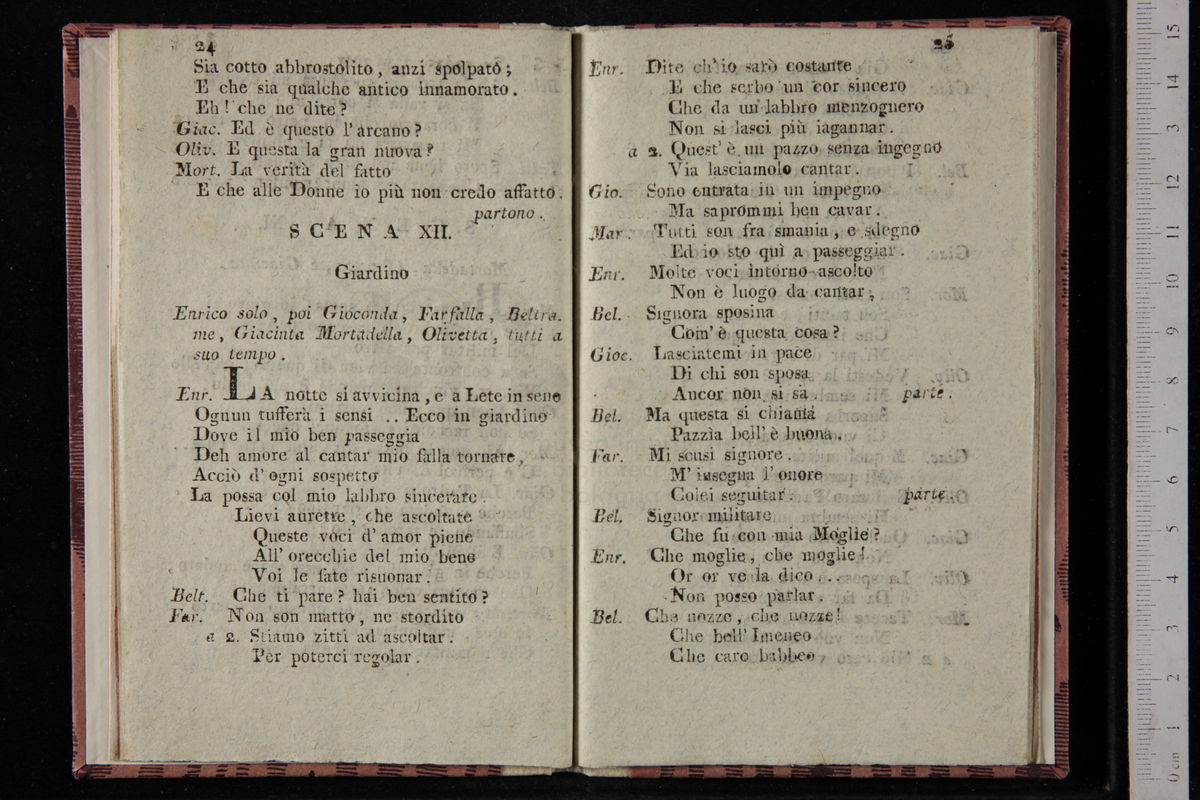 24
Sia cotto abbrostolito, anzi spolpato;
E che sia qualche antico innamorato.
Eh! che ne dite?
Giac. Ed è questo l'arcano?
Oliv. E questa la gran nuova?
Mort. La verità del fatto
E che alle Donne io più non credo affatto.
partono.
SCENA XII.
Giardino
Enrico solo, poi Gioconda, Farfalla, Beltra-
me, Giacinta Mortadella, Olivetta, tutti a
suo tempo.
Enr. LA notte si avvicina, e a Lete in seno
Ognun tufferà i sensi .. Ecco in giardino
Dove il mio ben passeggia
Deh amore al cantar mio falla tornare,
Acciò d'ogni sospetto
La possa col mio labbro sincerare.
Lievi aurette, che ascoltate
Queste voci d'amor piene
All'orecchie del mio bene
Voi le fate risuonar.
Belt. Che ti pare? hai ben sentito?
Far. Non son matto, ne stordito
a 2. Stiamo zitti ad ascoltar.
Per poterci regolar.
25
Enr. Dite ch'io sarò costante
E che serbo un cor sincero
Che da un labbro menzognero
Non si lasci più iagannar.
a 2. Quest'è un pazzo senza ingegno
Via lasciamolo cantar.
Gio. Sono entrata in un impegno
Ma saprommi ben cavar.
Mar. Tutti son fra smania, e sdegno
Ed io sto quì a passeggiar.
Enr. Molte voci intorno ascolto
Non è luogo da cantar,
Bel. Signora sposina
Com'è questa cosa?
Gioc. Lasciatemi in pace
Di chi son sposa
Ancor non si sa. parte.
Bel. Ma questa si chiama
Pazzìa bell'è buona.
Far. Mi scusi signore.
M'insegna l'onore
Colei seguitar. parte.
Bel. Signor militare
Che fu con mia Moglie?
Enr. Che moglie, che moglie!
Or or ve la dico...
Non posso parlar.
Bel. Che nozze, che nozze!
Che bell'Imeneo
Che caro babbeo